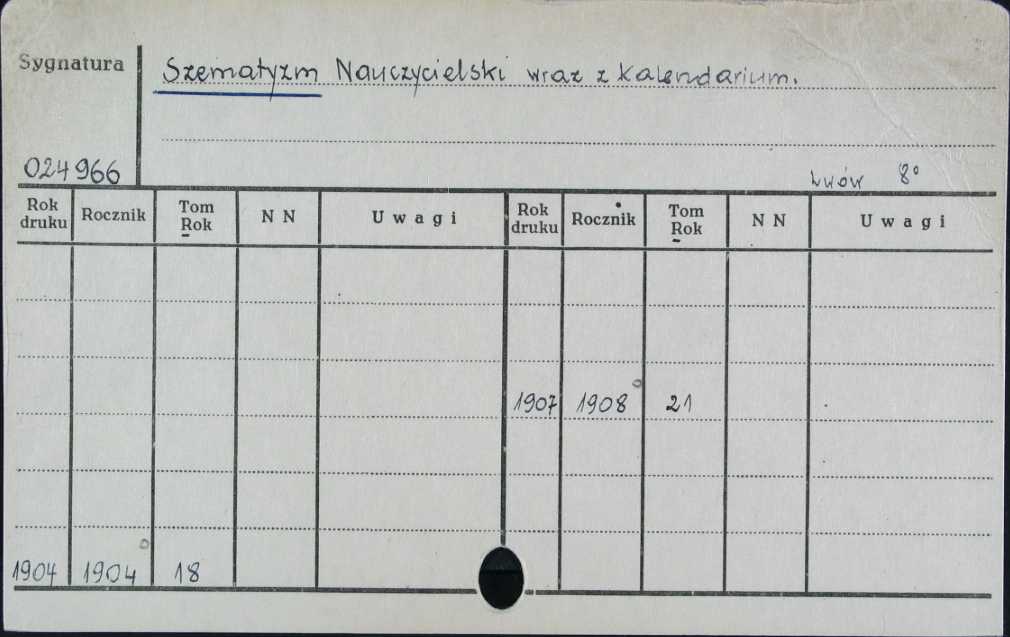 Sygnatura
Szematyzm Nauczycielski wraz z kalendarium.
024966
Lwów 8°
Rok druku Rocznik Tom Rok N N U w a g i Rok druku Rocznik Tom Rok N N U w a g i
1907 1908 21
1904 1904 18